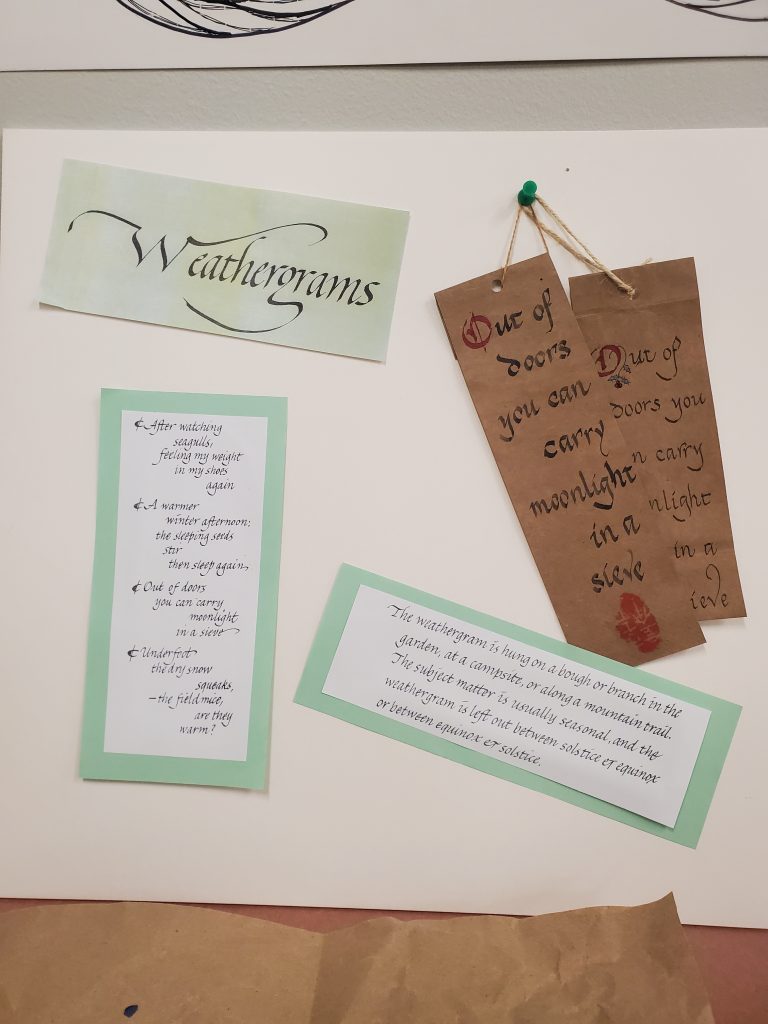 Weathergrams
¢ After watching
seagulls,
feeling my weight
in my shoes
again
¢ A warmer
winter afternoon;
the sleeping seeds
stir
then sleep again
¢ Out of doors
you can carry
moonlight
in a sieve
¢ Underfoot
the dry snow
squeaks,
—the field mice,
are they
warm?
Out of
doors
you can
carry
moonlight
in a
sieve
Out of
doors you
n carry
nlight
in a
ieve
The weathergram is hung on a bough or branch in the
garden, at a campsite, or along a mountain trail.
The subject matter is usually seasonal, and the
weathergram is left out between solstice & equinox
or between equinox & solstice.